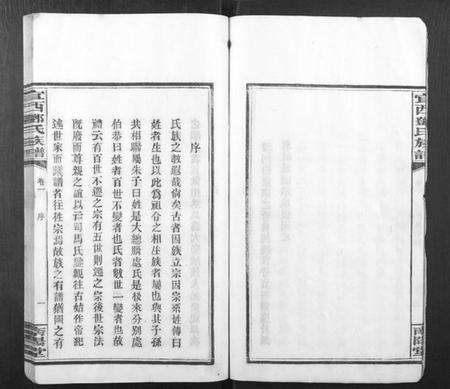 序
氏族之教遐哉尚矣古者因族立宗因宗系姓傳曰
姓者生也以此為祖令之相生族者屬也與其子孫
共相聯屬朱子曰姓是大總腦處氏是後來分別處
伯恭曰姓者百世不變者也氏者數世一變者也故
禮云有百世不遷之宗有五世則遷之宗後世宗法
既廢而尊親之誼以云司馬氏繼經往古始作帝紀
述世家而族譜者往往宗焉故族之有譜猶國之有
宜西鄭氏族譜
卷一
序
一
南陽堂
宜西鄭氏族譜
南陽堂